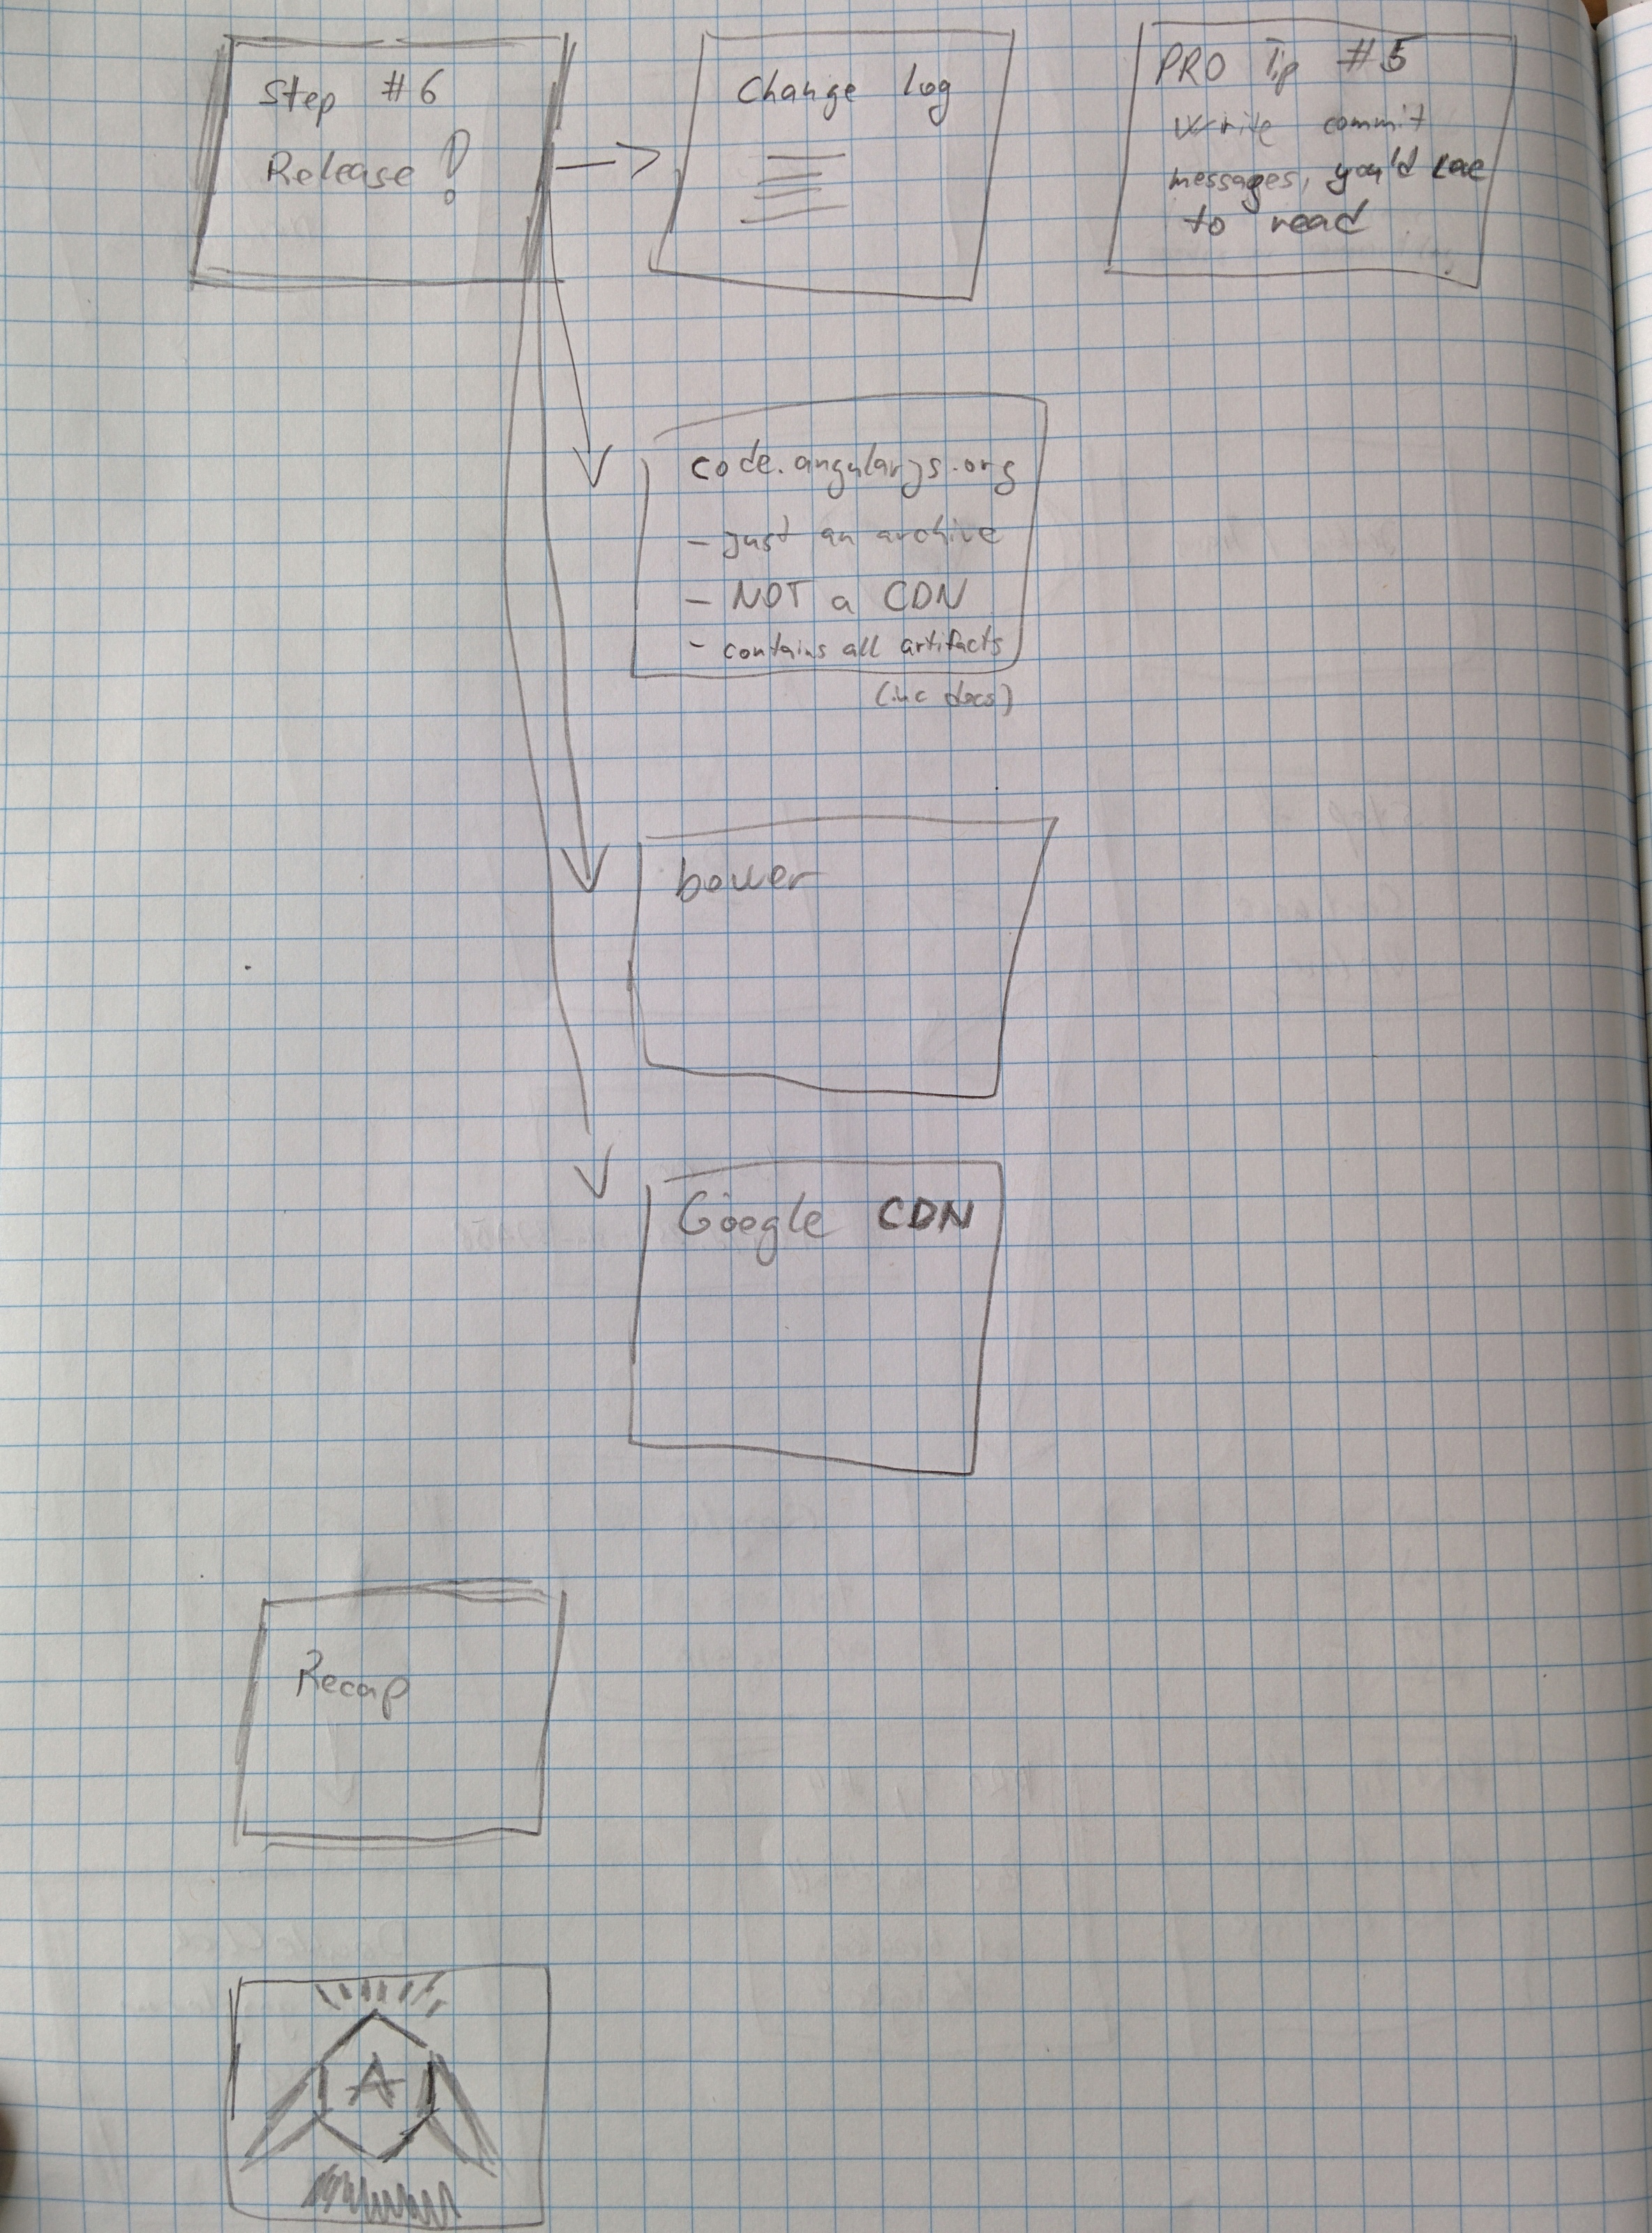 Step #6
Release!
Change log
PRO Tip #5
Write commit
messages, you'd
to read
code.angularjs.org
- just an archive
- NOT a CDN
- contains all artifacts
(inc docs)
bower
Google CDN
Recap
A